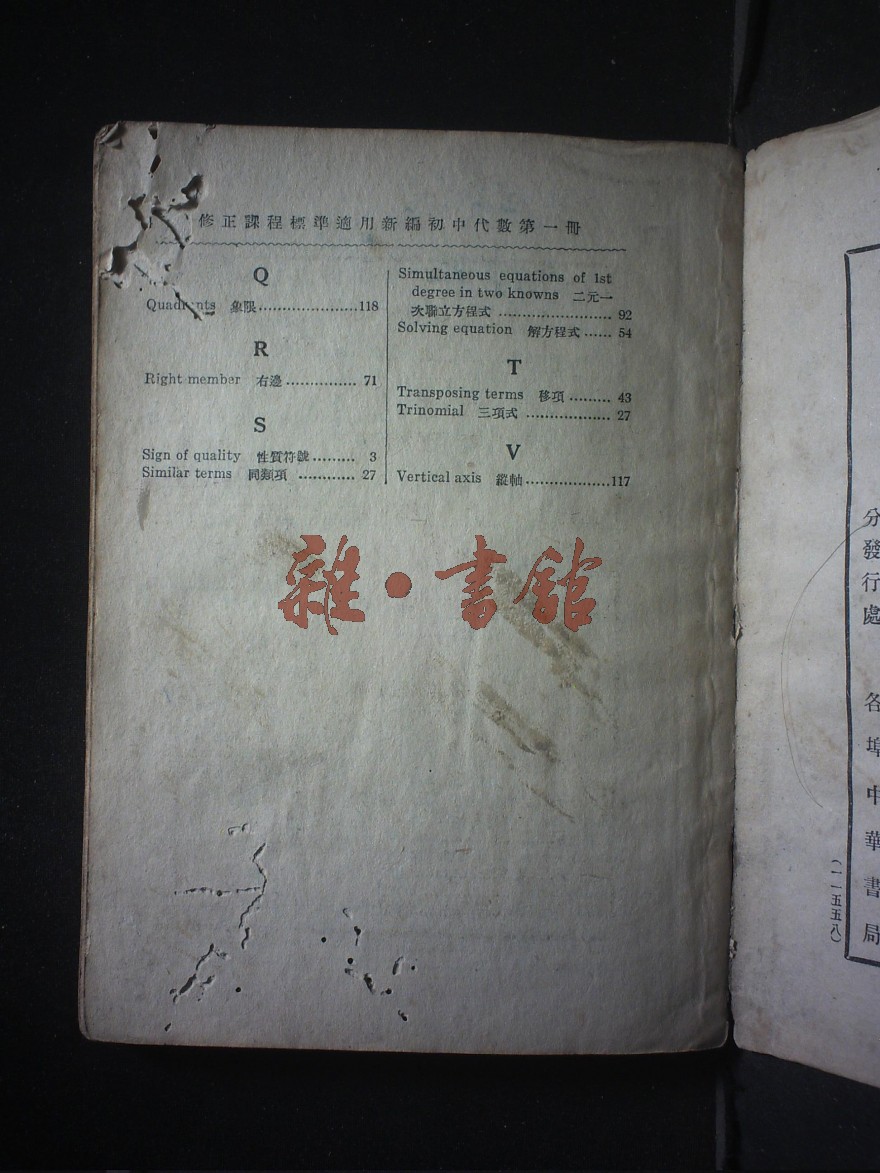 修正課程標準適用新編初中代數第一冊
Q
Quadrants 象限.....................118
R
Right member 右邊............... 71
S
Sign of quality 性質符號......... 3
Similar terms 同類項 ............ 27
Simultaneous equations of 1st
degree in two knowns 二元一
次聯立方程式 ........................ 92
Solving equation 解方程式...... 54
T
Transposing terms 移項......... 43
Trinomial 三項式 .................. 27
V
Vertical axis 縱軸..................117
雜·書館
分發行處 各埠中華書局
(一一五五八)